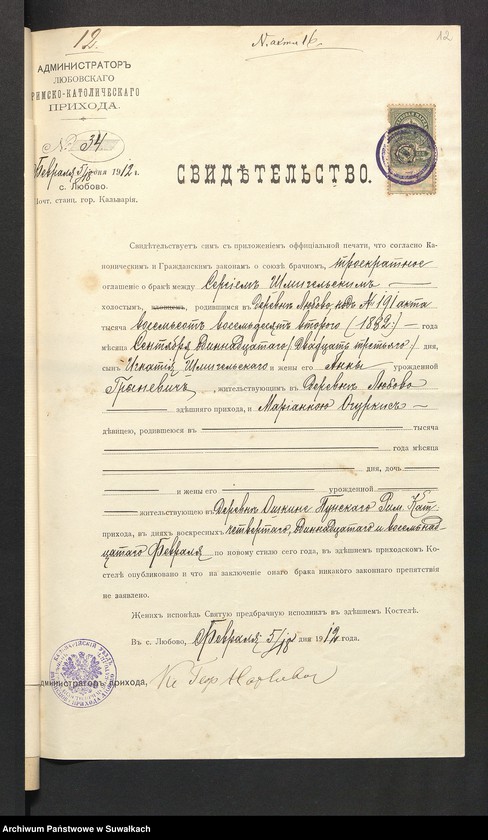 12.
N. акта 16.
12
АДМИНИСТРАТОРЪ
ЛЮБОВСКАГО
РИМСКО-КАТОЛИЧЕСКАГО
ПРИХОДА.
№ 34
Февраля 5/18 дня 1912 г.
с. Любово.
Почт. станц. гор. Кальварія.
СВИДѢТЕЛЬСТВО.
Свидѣтельствуетъ симъ съ приложеніемъ оффиціальной печати, что согласно Ка-
ноническимъ и Гражданскимъ законамъ о союзѣ брачномъ, троекратное
оглашеніе о бракѣ между Сергіемъ Шмигельскимъ
холостымъ, вдовцомъ, родившимся въ деревнѣ Любово, подъ № 191 акта
тысяча восемьсотъ восемьдесятъ второго (1882) года
мѣсяца Сентября Одиннадцатаго (Двадцать третьяго) дня,
сынъ Игнатія Шмигельскаго и жены его Анны урожденной
Грыневичъ, жительствующимъ въ Деревнѣ Любово
здѣшняго прихода, и Маріанною Огуркисъ
дѣвицею, родившеюся въ тысяча
года мѣсяца
дня, дочь
и жены его урожденной
жительствующею въ Деревнѣ Ошкине Пунскаго Рим. Кат.
прихода, въ дняхъ воскресныхъ четвертаго, Одиннадцатаго и восемьнад-
цатаго Февраля по новому стилю сего года, въ здѣшнемъ приходскомъ Ко-
стелѣ опубликовано и что на заключеніе онаго брака никакого законнаго препятствія
не заявлено.
Женихъ исповѣдь Святую предбрачную исполнилъ въ здѣшнемъ Костелѣ.
Въ с. Любово, Февраля 5/18 дня 1912 года.
Администраторъ прихода,
Archiwum Państwowe w Suwałkach